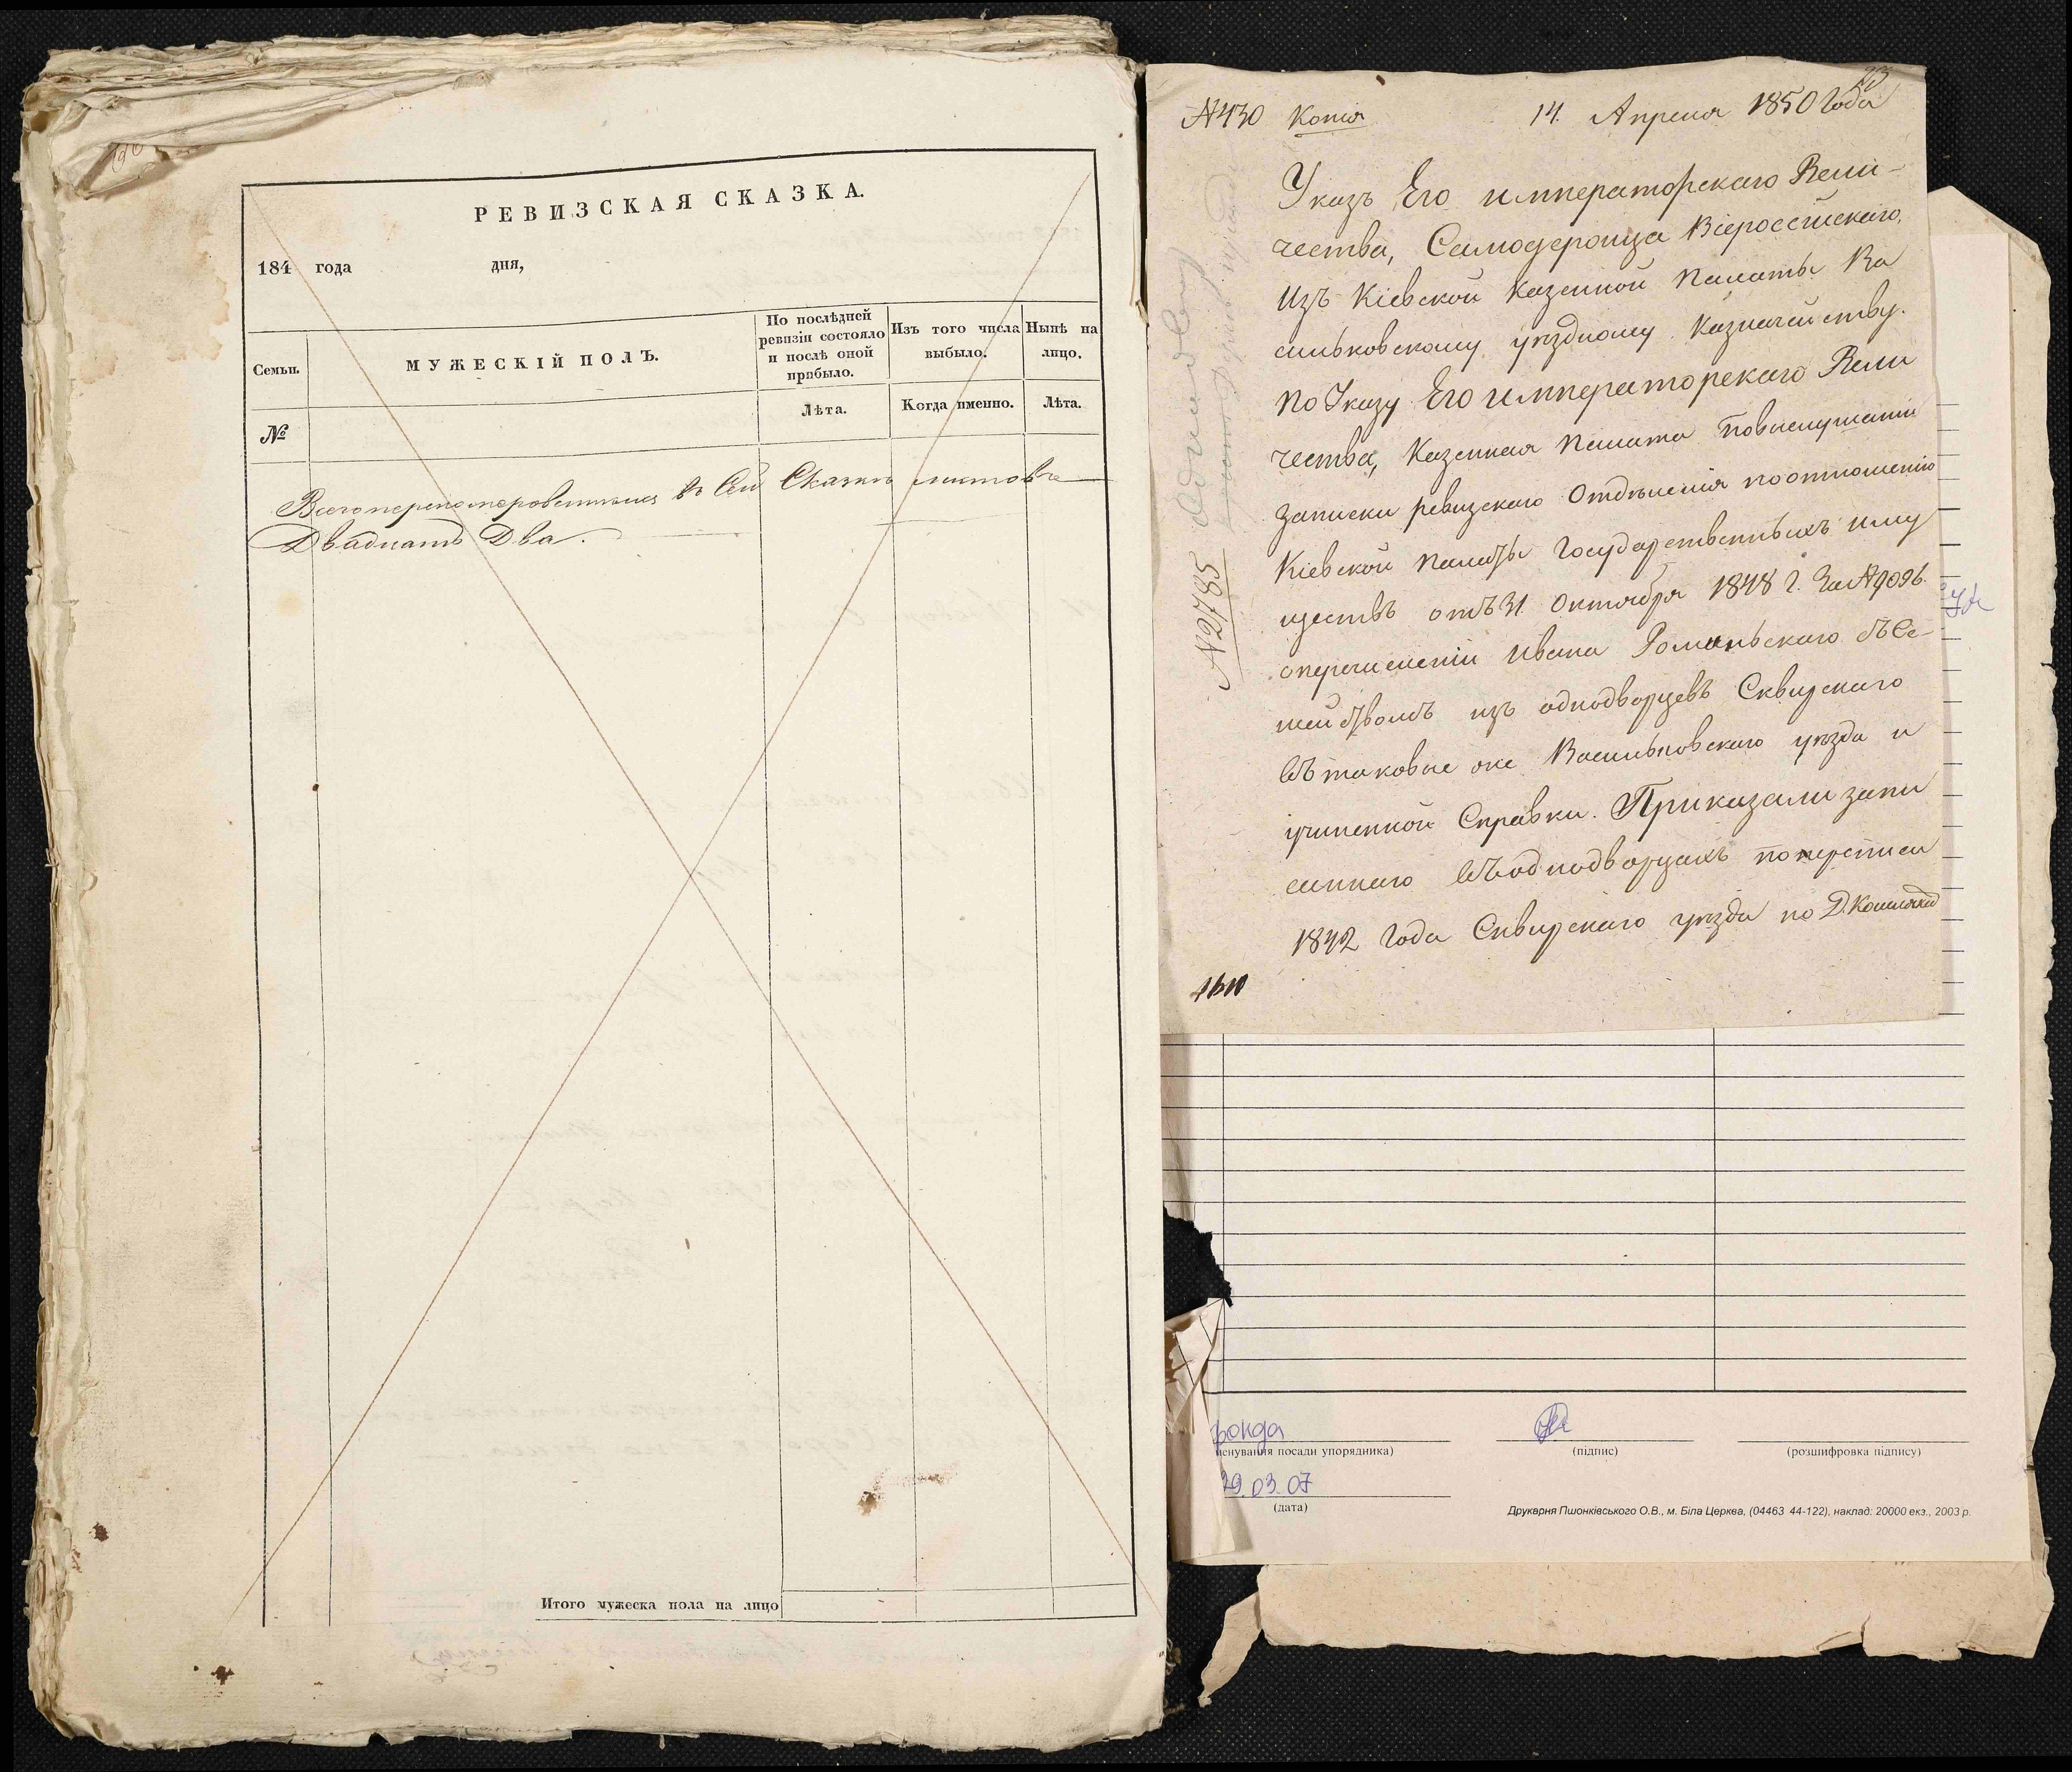 РЕВИЗСКАЯ СКАЗКА.
184 года дня,
Семьи.
МУЖЕСКІЙ ПОЛЪ.
По послѣдней ревизіи состояло и послѣ оной прибыло.
Изъ того числа выбыло.
Нынѣ на лицо.
№
Лѣта.
Когда именно.
Лѣта.
Всего перенумерованныхъ въ Сей Сказкѣ листовъ
Двадцать Два.
Итого мужеска пола на лицо
23
№430 Копія 14. Апреля 1850 Года
Указъ Его императорскаго Вели-
чества, Самодержца Всероссійскаго,
Изъ Кіевской Казенной Палаты Ва
сильковскому уѣздному Казначейству.
По Указу Его императорскаго Вели
чества, Казенная Палата повыслушаніи
записки ревизскаго Отдѣленія поотношенію
Кіевской Палаты Государственныхъ иму
ществъ отъ 31 Октября 1848 г. За №9096.
оперечисленіи Ивана Романьскаго съ Се-
мействомъ изъ однодворцевъ Сквирскаго
въ таковые же Васильковскаго уѣзда и
учиненной Справки. Приказали запи
саннаго въ однодворцахъ поперeписи
1842 года Сквирскаго уѣзда по Д.
№2785
фонда
енування посади упорядника)
(підпис)
(розшифровка підпису)
29.03.07
(дата)
Друкарня Пшонківського О.В., м. Біла Церква, (04463 44-122), наклад: 20000 екз., 2003 р.